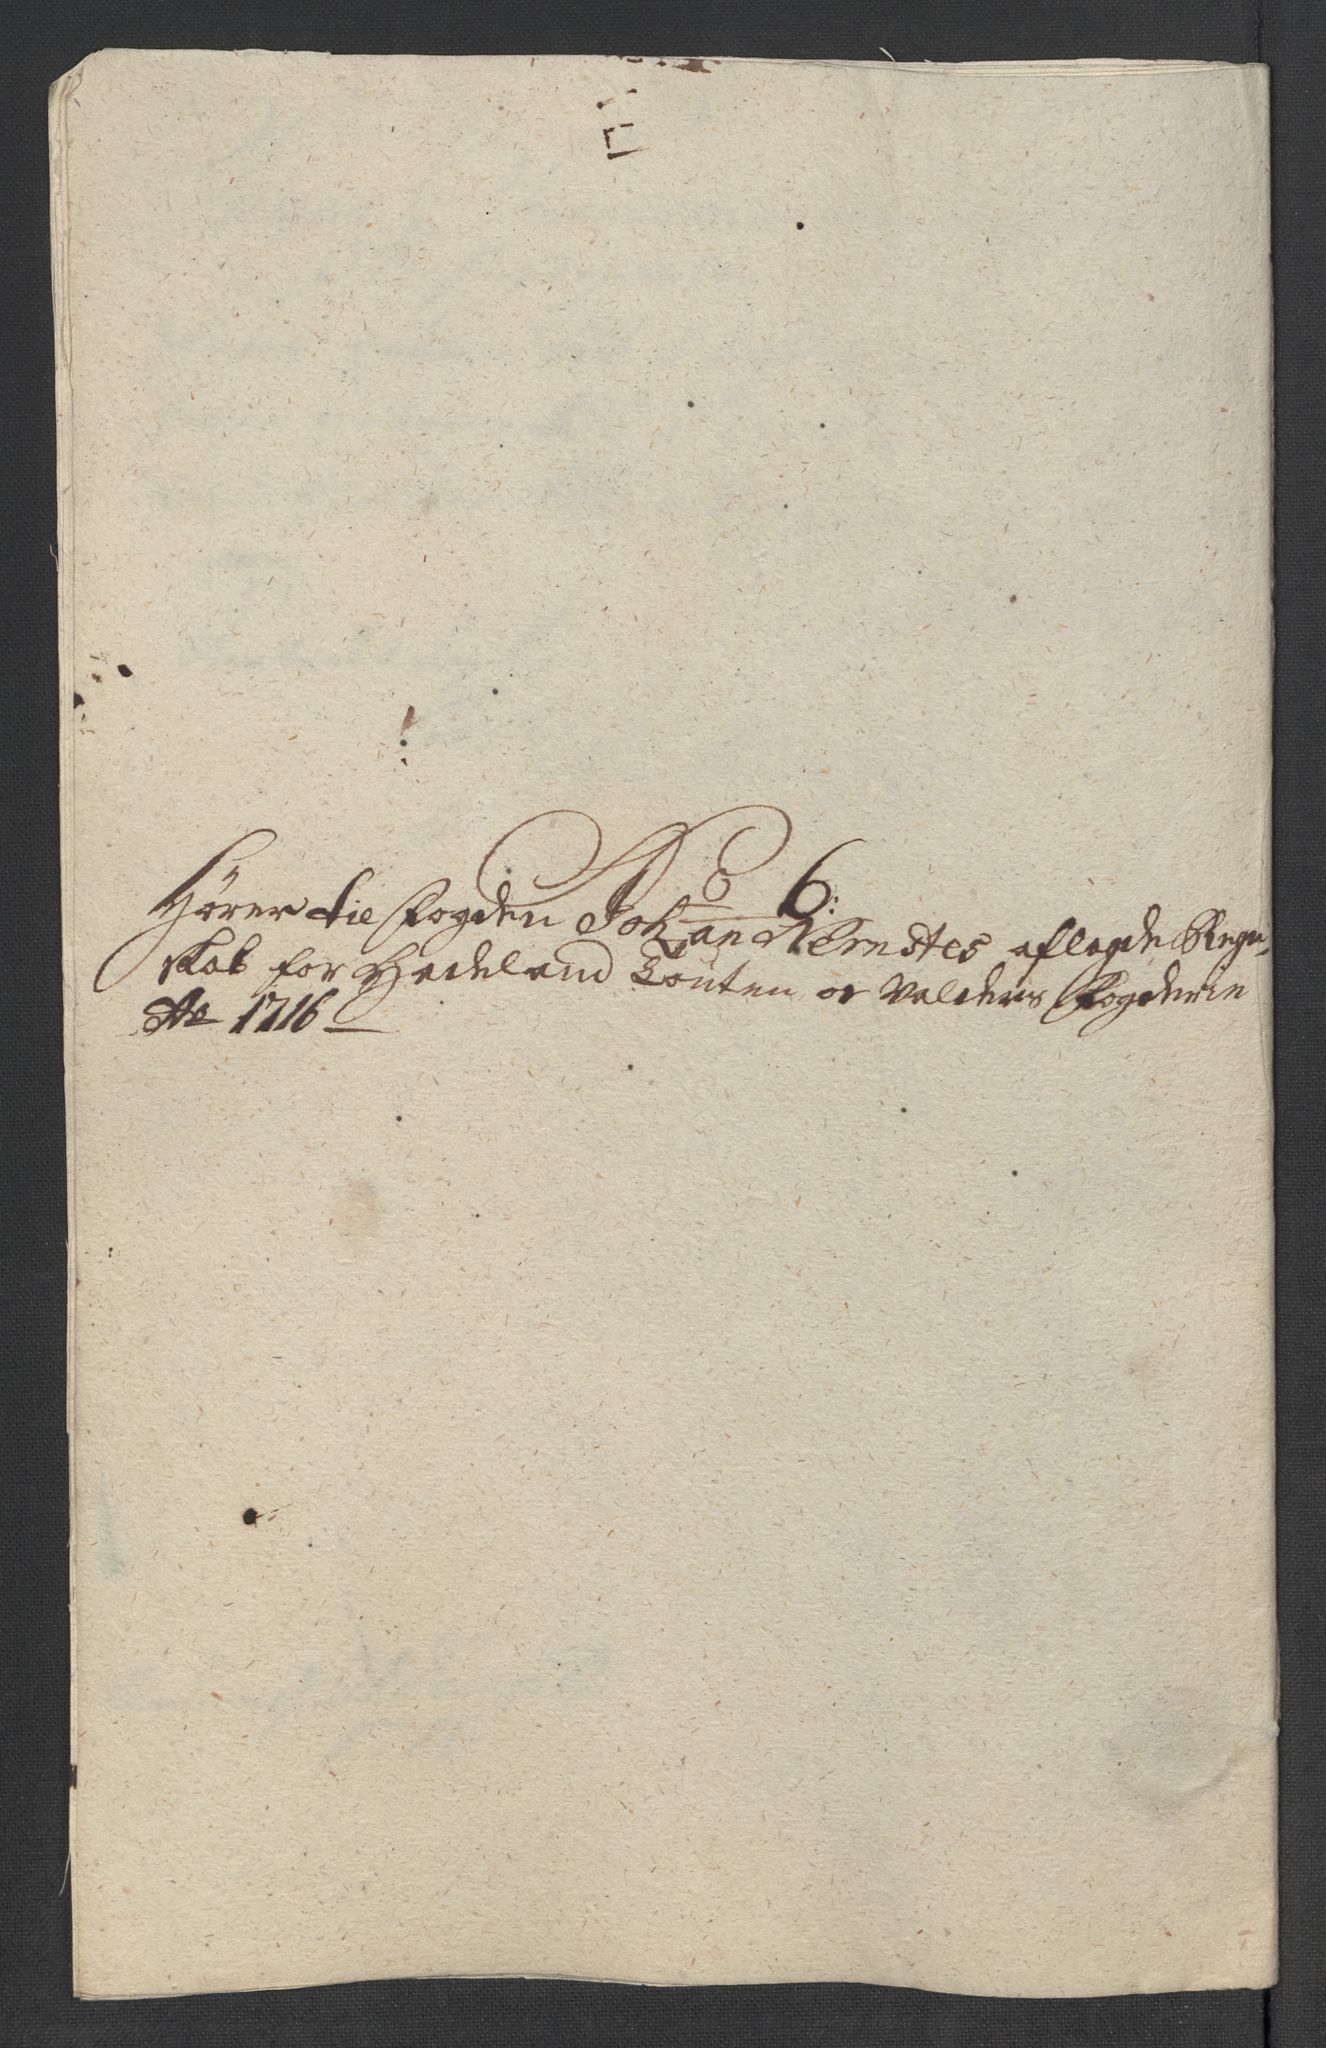 No 6:
Hører til fogden Johan Arendtes aflagde Regn-
skab for Hadeland Touten og Valders Fogderie
Ao 1716